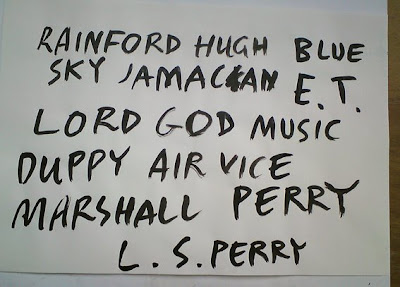 RAINFORD HUGH BLUE
SKY JAMACAN E.T.
LORD GOD MUSIC
DUPPY AIR VICE
MARSHALL PERRY
L.S.PERRY